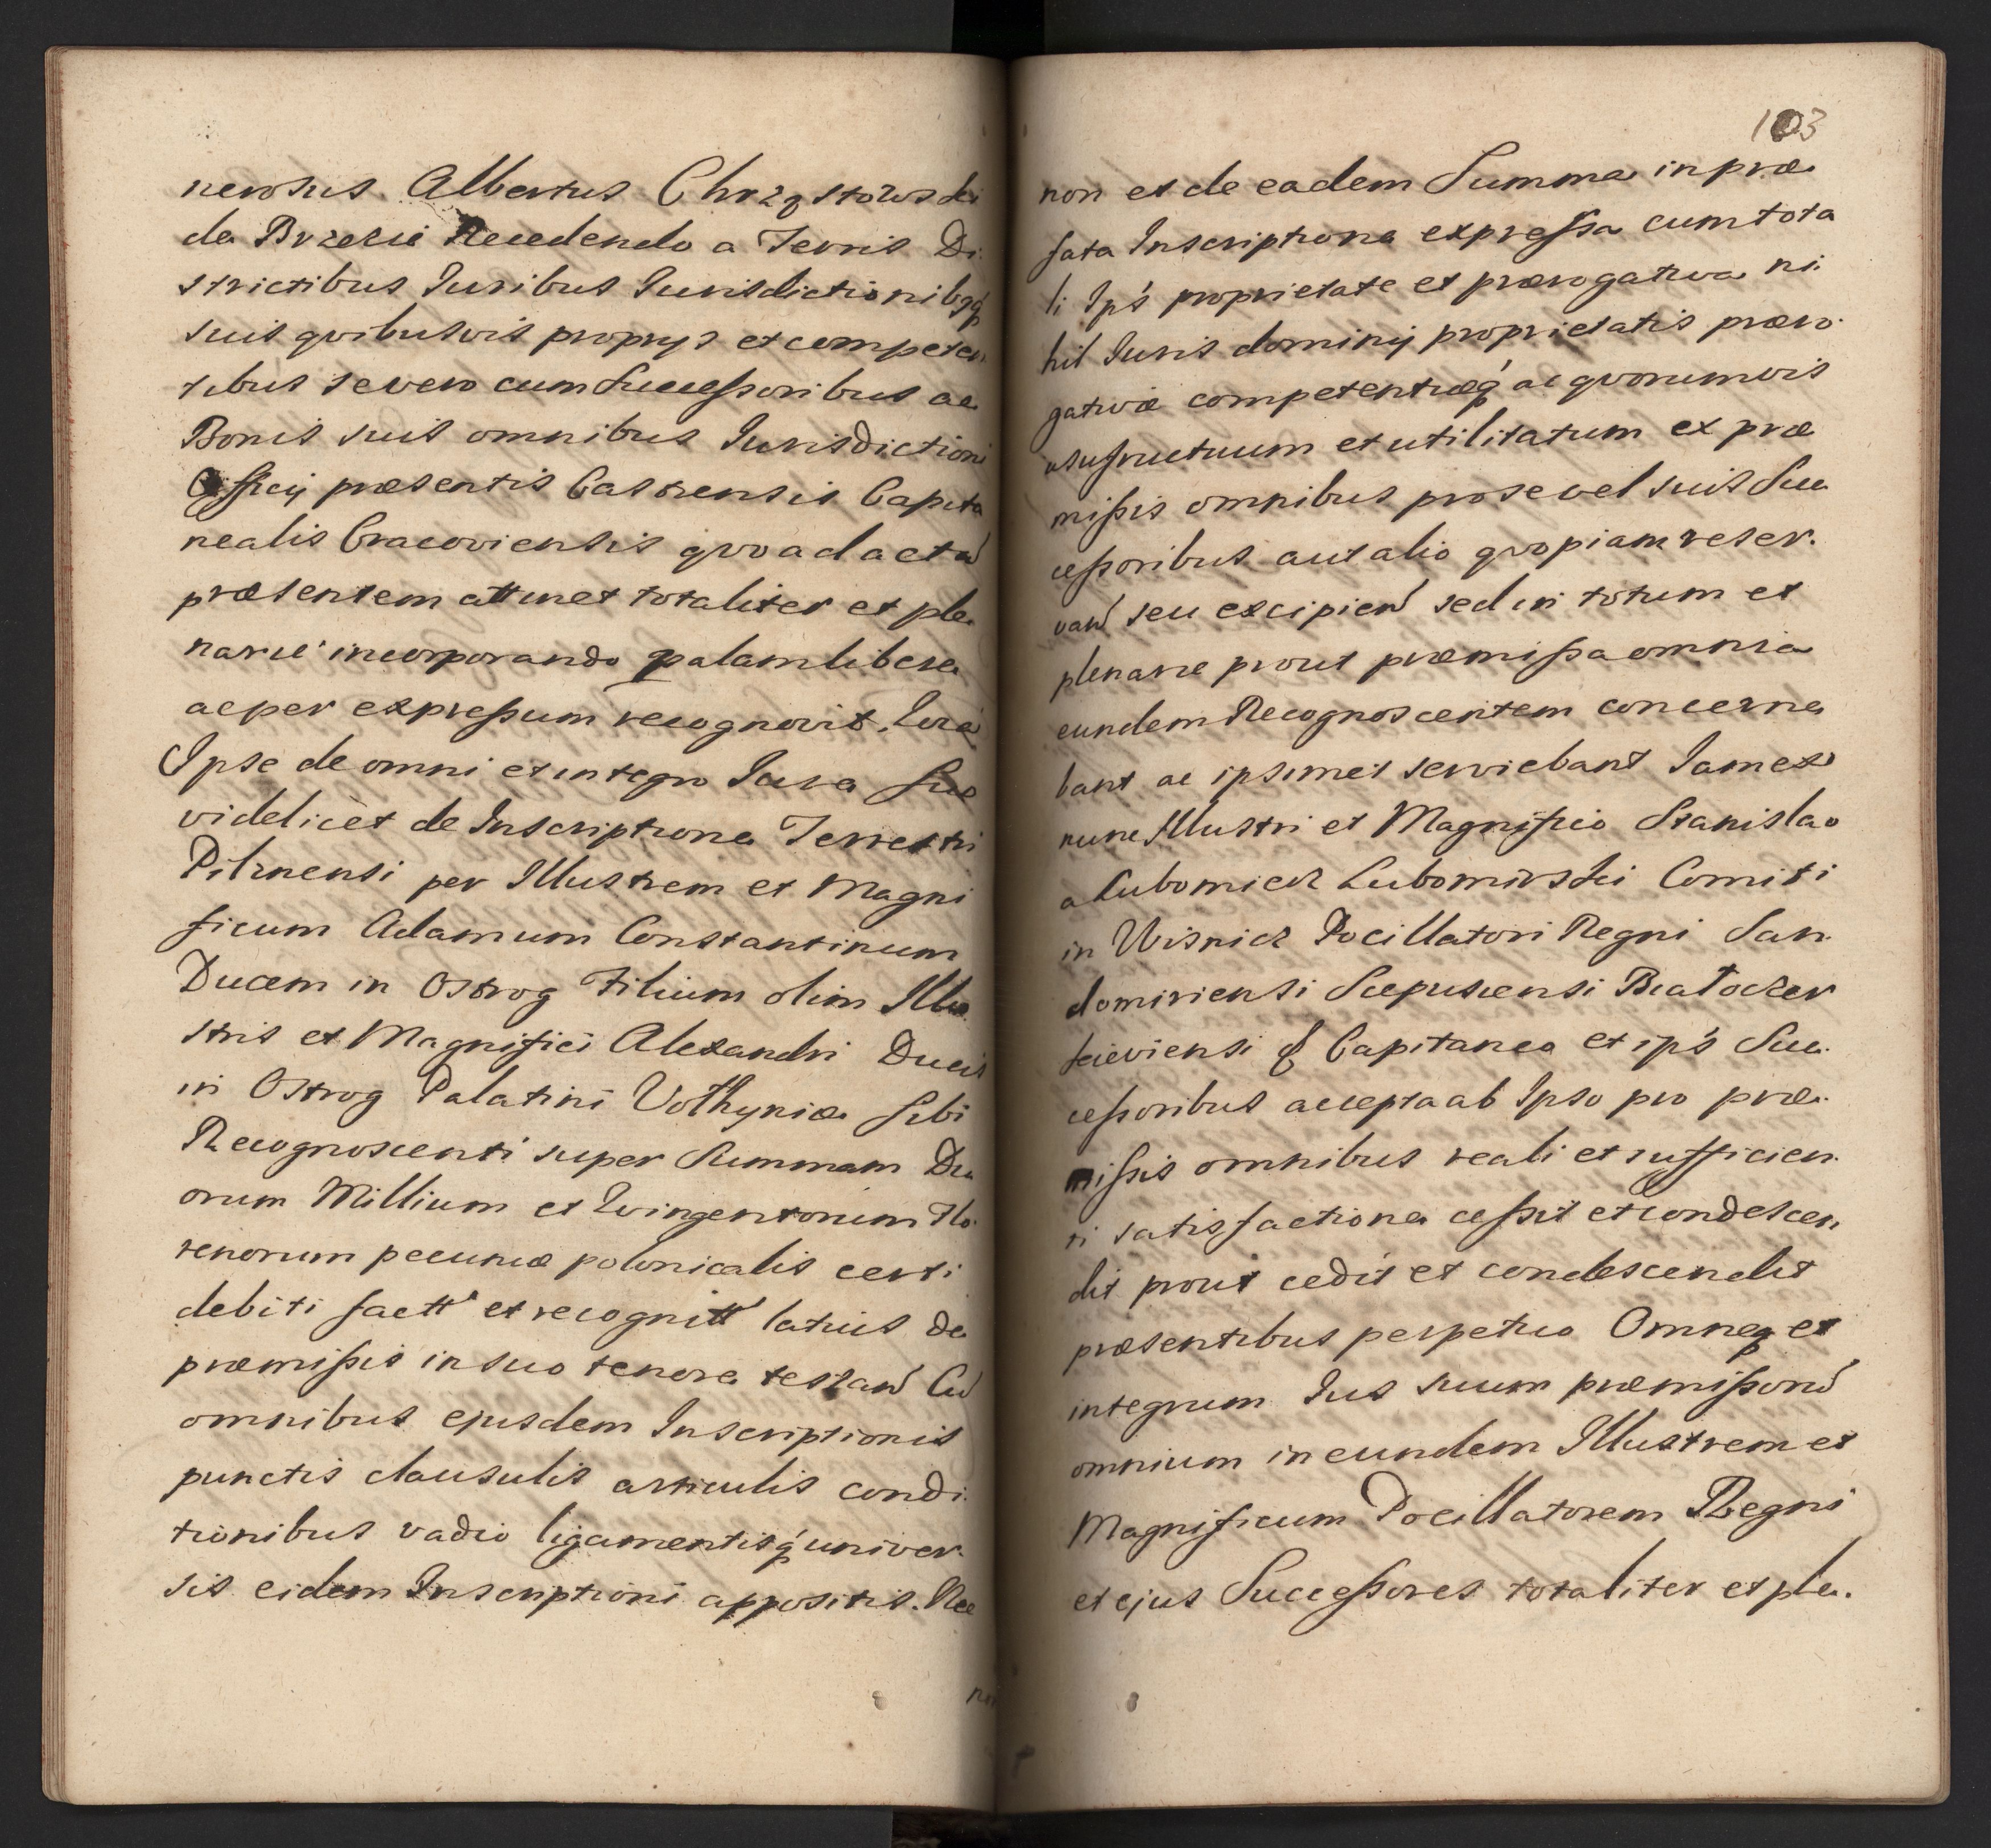 nerosus Albertus Chrząstowski
de Brzezie Recedendo a Terris Di-
strictibus Juribus Jurisdictionibqꝫ
suis qvibusvis proprys et competen
tibus se vero cum Successoribus ac
Bonis suis omnibus Jurisdictioni
Officij præsentis Castrensis Capita
nealis Cracoviensis qvo ad actu
præsentem attinet totaliter et ple
narie incorporando palam libere
ac per expressum recognovit, Qvia
Ipse de omni et integro Jure suo
videlicet de Inscriptione Terrestri
Pilznensi per Illustrem et Magni
ficum Adamum Constantinum
Ducem in Ostrog Filium olim Illu
stris et Magnifici Alexandri Ducis
in Ostrog Palatini Volhyniæ sibi
Recognoscenti super Summam Du
orum Millium et Qvingentorum Flo-
renorum pecuniæ polonicalis certi
debiti factt et recognitt latius de
præmissis in suo tenore testan Cu
omnibus ejusdem Inscriptionis
punctis clausulis articulis condi-
tionibus vadio ligamentisq́ univer-
sis eidem Inscriptioni appositis. Nec
103
non et de eadem Summa in præ
fata Inscriptione expressa cum tota
li Ips proprietate et prærogativa ni-
hil Juris dominij proprietatis præro-
gativæ competentiæq́ ac qvorumvis
usufructuum et utilitatum ex præ
missis omnibus pro se vel suis Suc
cessoribus aut alio qvopiam reser-
van seu excipien sed in totum et
plenarie prout præmissa omnia
eundem Recognoscentem concerne
bant ac ipsimet serviebant Jam ex
nunc Illustri et Magnifico Stanislao
a Lubomierz Lubomirski Comiti
in Wisnicz Pocillatori Regni San-
domiriensi Scepusiensi Biatoczer
kieviensi & Capitaneo et ips Suc-
cessoribus accepta ab Ipso pro præ-
missis omnibus reali et sufficien-
ti satisfactione cessit et condescen
dit prout cedit et condescendit
præsentibus perpetuo Omneq et
integrum Jus suum præmissoru
omnium in eundem Illustrem et
Magnificum Pocillatorem Regni
et ejus Successores totaliter et ple-